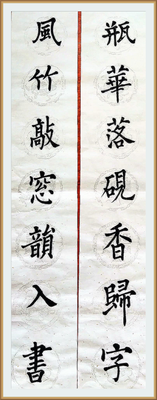 瓶華落硯香歸字
風竹敲窓韻入書